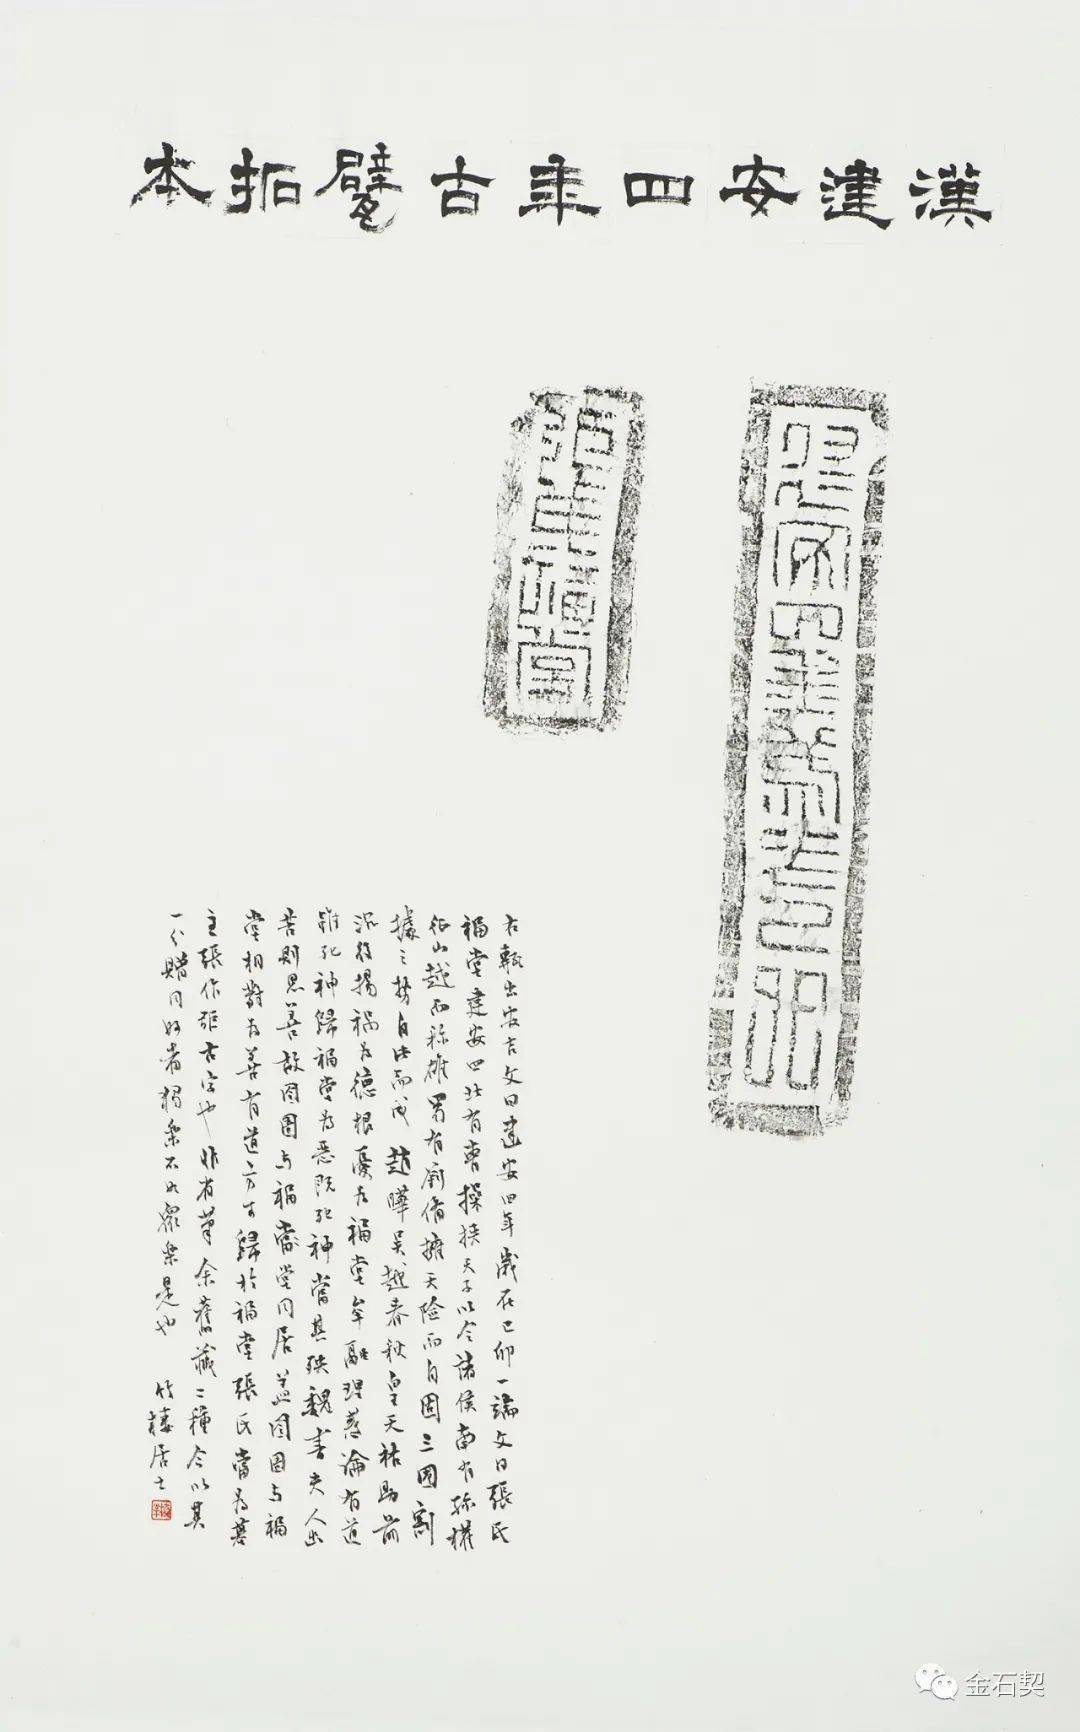 漢建安四年古甓拓本
建安四年歲在己卯
張氏福堂
右甎出安吉文曰建安四年歲在己卯一端文曰張氏
福堂建安四北有曹操挾天子以令諸侯南有孫權
征山越而稱雄蜀有劉備擁天險而自固三國割
據之勢自此而成趙曄吳越春秋皇天祐助前
沉後揚禍為德根憂為福堂牟融理惑論有道
雖死神歸福堂為惡既死神當其殃魏書夫人出
苦則思善故囹圄與福堂同居蓋囹圄與福
堂相對為善有道方可歸於福堂張氏當為墓
主張作張古字也非省筆余舊藏二種今以其
一分贈同好者獨樂不如眾樂是也 竹樓居士
金石契